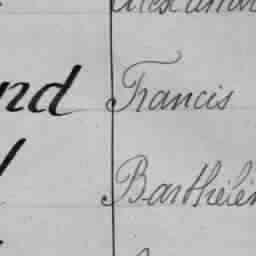 nd Francis
Barthélém